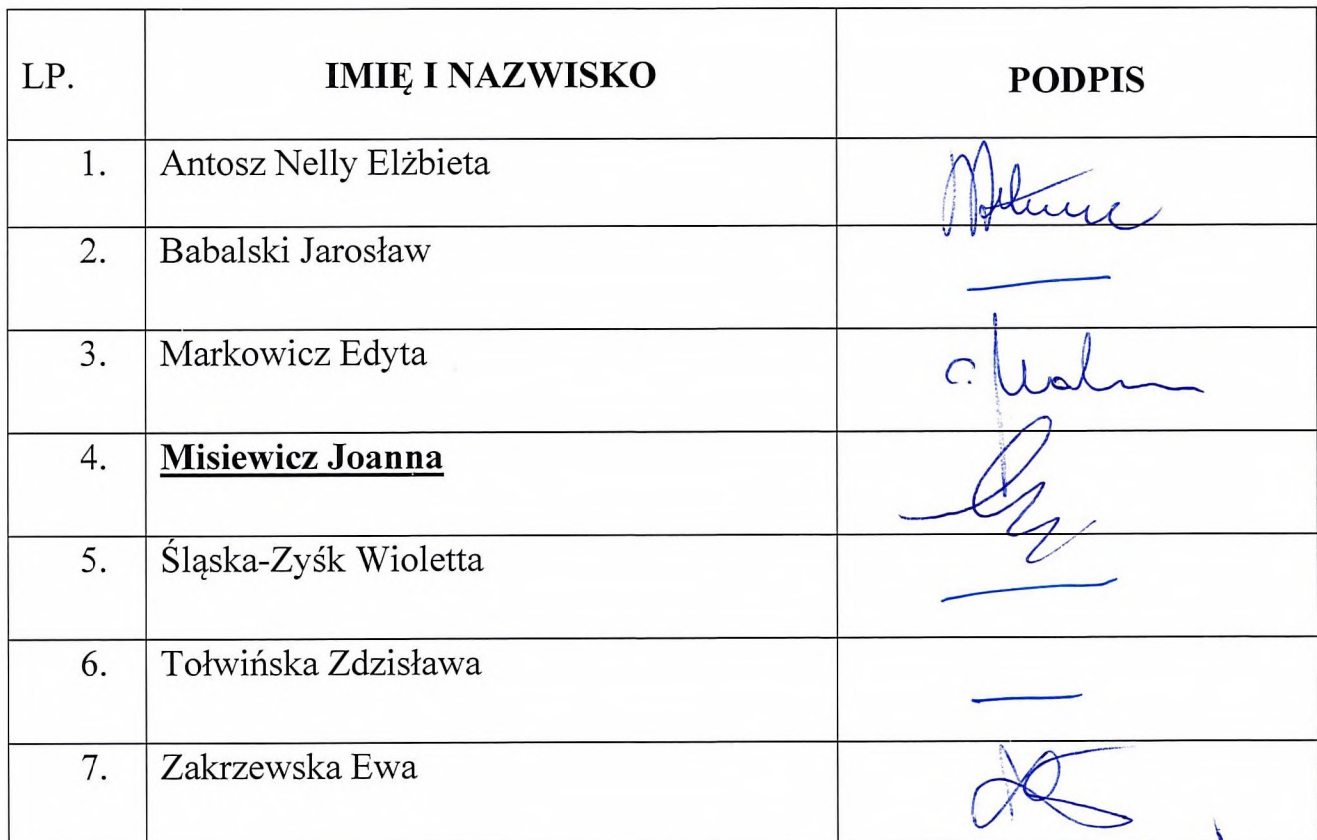 LP. IMIĘ I NAZWISKO PODPIS
1. Antosz Nelly Elżbieta
2. Babalski Jarosław
3. Markowicz Edyta
4. Misiewicz Joanna
5. Śląska-Zyśk Wioletta
6. Tołwińska Zdzisława
7. Zakrzewska Ewa